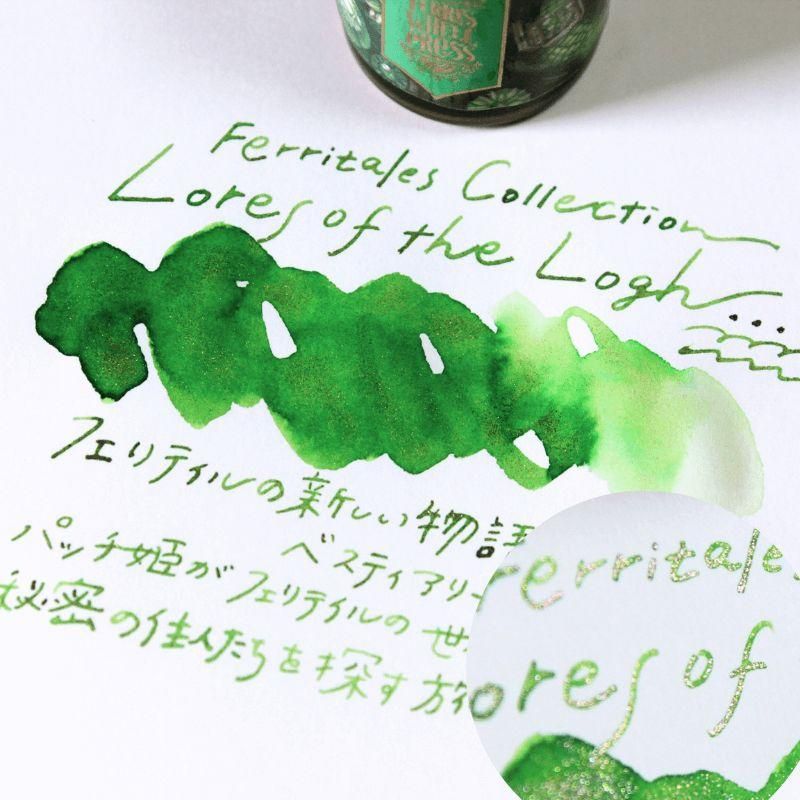 FERRIS WHEEL PRESS
Ferritales Collection
Lores of the Logh...
フェリテイルの新しい物語
ベスティアリー
パッチ姫がフェリテイルの世
秘密の住人たちを探す旅
Ferritales
ores of